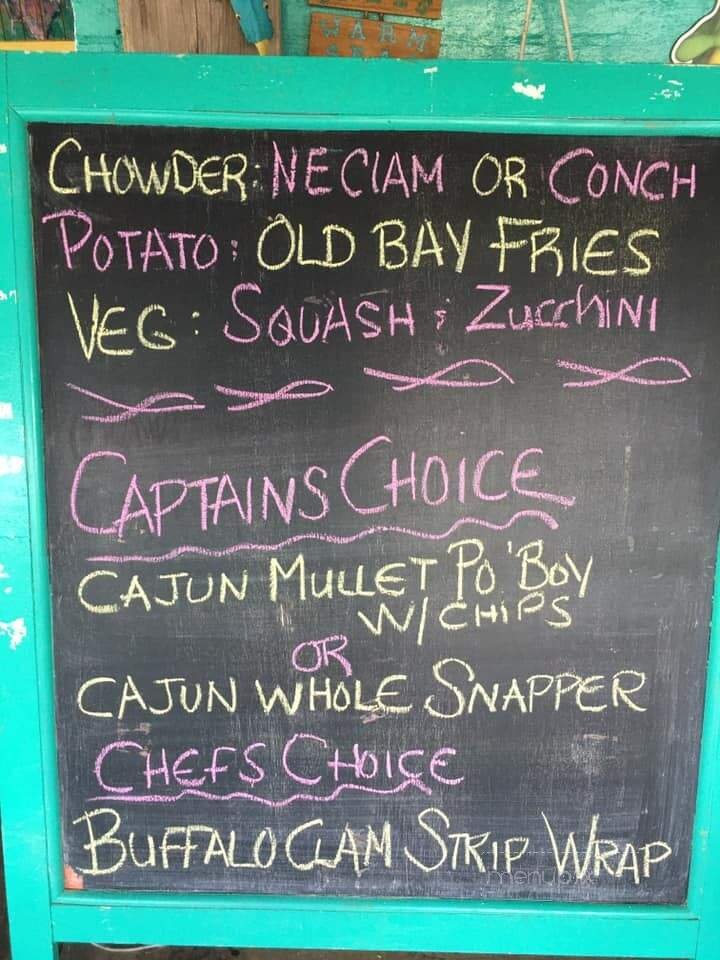 WARM
CHOWDER: NE ClAM OR CONCH
POTATO: OLD BAY FRIES
VEG: SQUASH & ZuccHINI
CAPTAINS CHOICE
CAJUN MULLET PO'BOY
W/ CHIPS
OR
CAJUN WHOLE SNAPPER
CHEFS CHOICE
BUFFALO CLAM STRIP WRAP